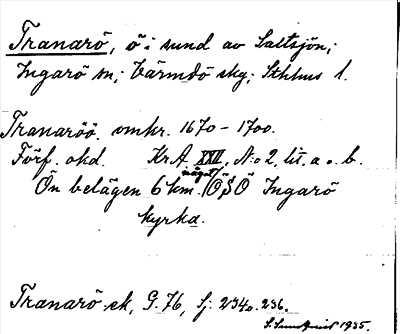 Tranarö, ö i sund av Saltsjön;
Ingarö sn; Värmdö skg; Sthlms l.
Tranaröö. omkr. 1670-1700.
Förf. okd. KrA XXII, N:o 2, lit. a o. b.
Ön belägen 6 km. något ÖSÖ Ingarö
kyrka.
Tranarö ek, G. 76, Sj. 234 o. 236.
S. Sundquist 1935.